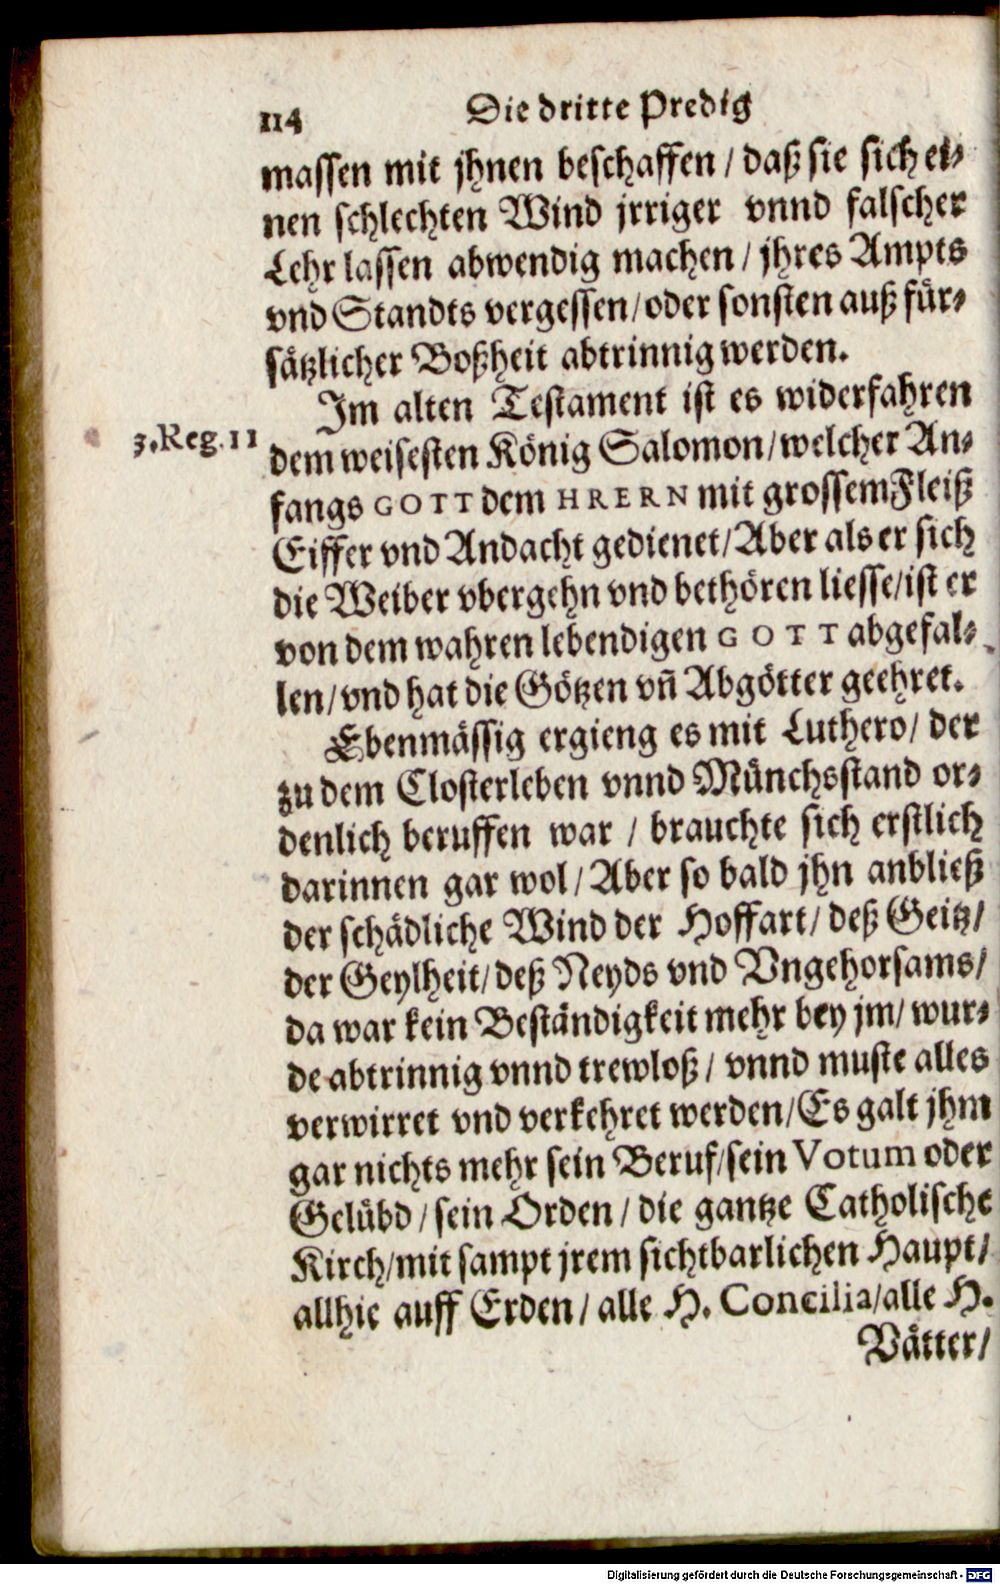 114 Die dritte Predig
massen mit jhnen beschaffen / daß sie sich ei⸗
nen schlechten Wind jrriger vnnd falscher
Lehr lassen abwendig machen / jhres Ampts
vnd Standts vergessen / oder sonsten auß für⸗
sätzlicher Boßheit abtrinnig werden.
Im alten Testament ist es widerfahren
3. Reg. 11
dem weisesten König Salomon / welcher An⸗
fangs GOTT dem HRERN mit grossem Fleiß
Eiffer vnd Andacht gedienet / Aber als er sich
die Weiber vbergehn vnd bethören liesse / ist er
von dem wahren lebendigen GOTT abgefal⸗
len / vnd hat die Götzen vñ Abgötter geehret.
Ebenmässig ergieng es mit Luthero / der
zu dem Closterleben vnnd Münchsstand or⸗
denlich beruffen war / brauchte sich erstlich
darinnen gar wol / Aber so bald jhn anbließ
der schädliche Wind der Hoffart / deß Geitz /
der Geylheit / deß Neyds vnd Vngehorsams /
da war kein Beständigkeit mehr bey jm / wur⸗
de abtrinnig vnnd trewloß / vnnd muste alles
verwirret vnd verkehret werden / Es galt jhm
gar nichts mehr sein Beruf / sein Votum oder
Gelübd / sein Orden / die gantze Catholische
Kirch / mit sampt jrem sichtbarlichen Haupt /
allhie auff Erden / alle H. Concilia / alle H.
Vätter /
Digitalisierung gefördert durch die Deutsche Forschungsgemeinschaft - DFG